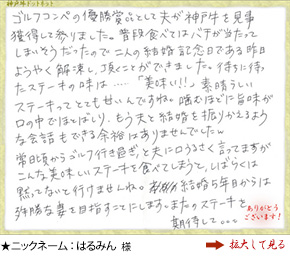 神戸牛ドットネット
ゴルフコンペの優勝賞品として夫が神戸牛を見事
獲得して参りました。普段食べてはバチが当たって
しまいそうだったので二人の結婚記念日である昨日
ようやく解凍し、頂くことができました。待ちに待っ
たステーキの味は……「美味い!!」素晴らしい
ステーキってとてもせいんですね。噛むほどに旨味が
口の中でほとばしり、もう夫と結婚を振りかえるよう
な会話もできる余裕はありませんでした
常日頃からゴルフ行き過ぎ、と夫に口うるさく言ってますが
こんな美味しいステーキを食べてしまうと、しばらくは
黙ってないと行けませんね。結婚5年目からは
寛容な妻を目指すことにします。またのステーキを
期待して。。。
ありがとう
ございます!
★ニックネーム：はるみん 様
拡大して見る